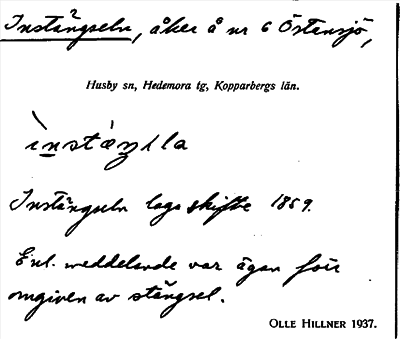 Instängseln, åker å nr 6 Östansjö,
Husby sn, Hedemora tg, Kopparbergs län.
ìnstáŋ̨lla
Instängseln laga skifte 1859.
Enl. meddelande var ägan förr
omgiven av stängsel.
OLLE HILLNER 1937.